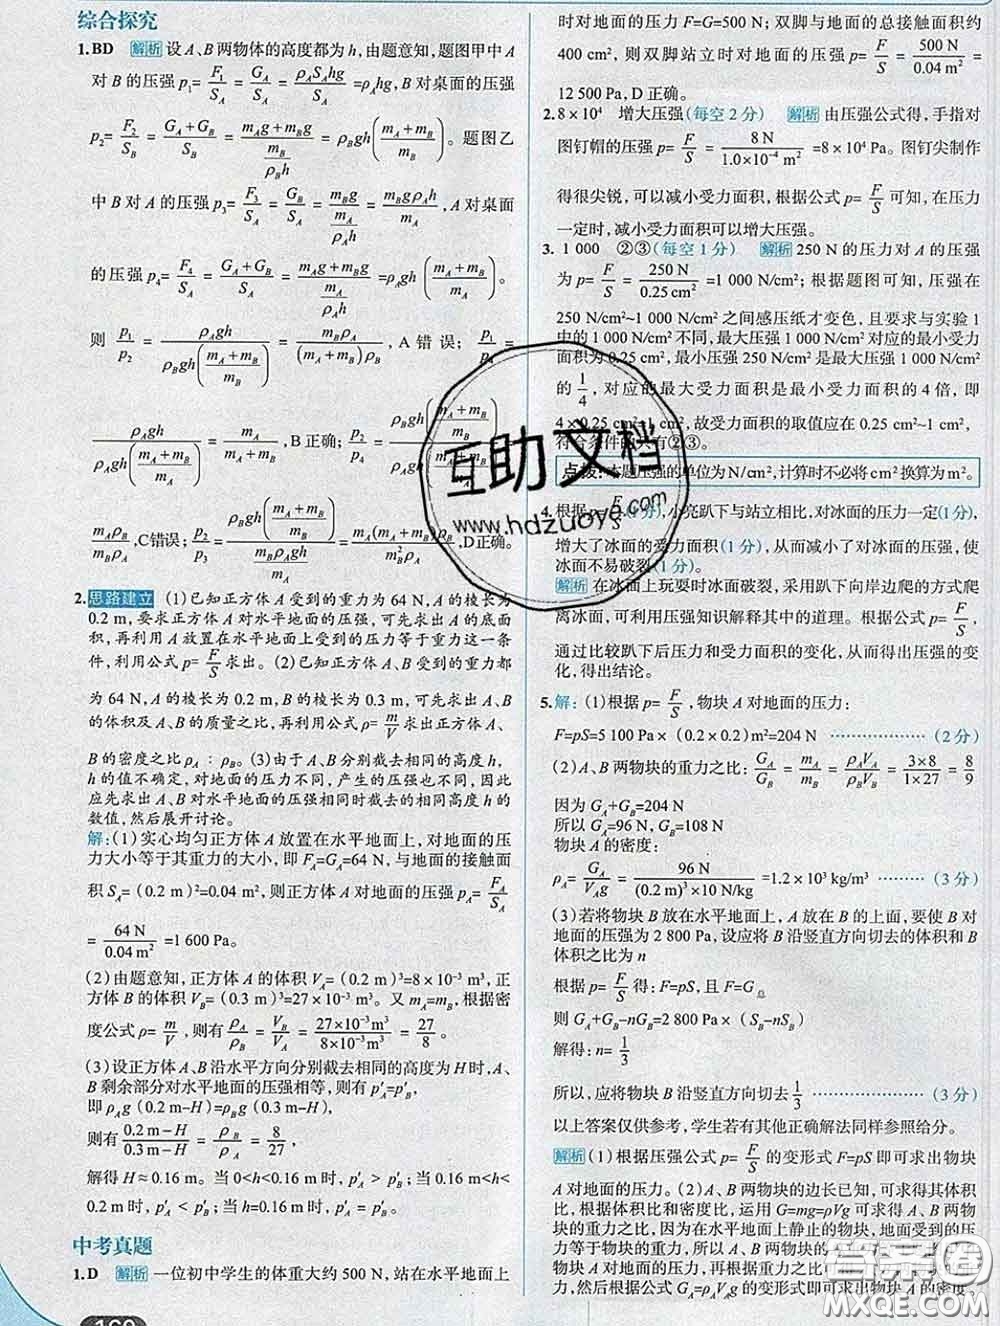 综合探究
1.BD 解析 设A、B两物体的高度都为h,由题意知,题图甲中A
对B的压强 p₁= F₁/S_A = G_A/S_A = ρ_A S_A hg/S_A =ρ_A hg,B对桌面的压强
p₂= F₂/S_B = (G_A+G_B)/S_B = (m_A g+m_B g)/(m_B/(ρ_B h)) =ρ_B gh((m_A+m_B)/m_B)。题图乙
中B对A的压强 p₃= F₃/S_A = G_B/S_A = m_B g/(m_A/(ρ_A h)) = m_B gρ_A h/m_A ,A对桌面
的压强 p₄= F₄/S_A = (G_A+G_B)/S_A = (m_A g+m_B g)/(m_A/(ρ_A h)) =ρ_A gh((m_A+m_B)/m_A)。
则 p₁/p₂ = ρ_A gh/(ρ_B gh((m_A+m_B)/m_B)) = m_B ρ_A/((m_A+m_B)ρ_B) ,A错误; p₁/p₄ =
ρ_A gh/(ρ_A gh((m_A+m_B)/m_A)) = m_A/(m_A+m_B) ,B正确; p₂/p₄ = ρ_B gh((m_A+m_B)/m_B)/(ρ_A gh((m_A+m_B)/m_A)) =
m_A ρ_B/(m_B ρ_A) ,C错误; p₄/p₃ = ρ_A gh((m_A+m_B)/m_A)/(m_B ρ_A gh/m_A) = m_A(m_A+m_B)/ ,D正确。
2.思路建立 (1)已知正方体A受到的重力为64 N,A的棱长为
0.2 m,要求正方体A对水平地面的压强,可先求出A的底面
积,再利用A放置在水平地面上受到的压力等于重力这一条
件,利用公式 p= F/S 求出。(2)已知正方体A、B受到的重力都
为64 N,A的棱长为0.2 m,B的棱长为0.3 m,可先求出A、B
的体积及A、B的质量之比,再利用公式ρ= m/V 求出正方体A、
B的密度之比ρ_A : ρ_B。(3)由于A、B截去的相同的高度h,
h的值不确定,对地面的压力不同,产生的压强也不同,因此
应先求出A、B对水平地面的压强相同时截去的相同高度h的
数值,然后展开讨论。
解:(1)实心均匀正方体A放置在水平地面上,对地面的压
力大小等于其重力的大小,即F_A=G_A=64 N,与地面的接触面
积S_A=(0.2 m)²=0.04 m²,则正方体A对地面的压强p_A= F_A/S_A
= 64 N/0.04 m² =1 600 Pa。
(2)由题意知,正方体A的体积V_A=(0.2 m)³=8×10⁻³ m³,正
方体B的体积V_B=(0.3 m)³=27×10⁻³ m³。又m_A=m_B,根据密
度公式ρ= m/V ,则有 ρ_A/ρ_B = V_B/V_A = 27×10⁻³ m³/8×10⁻³ m³ = 27/8
(3)设正方体A、B沿水平方向分别截去相同的高度为H时,A、
B剩余部分对水平地面的压强相等,则有p′_A=p′_B,
即ρ_A g(0.2 m-H)=ρ_B g(0.3 m-H),
则有 (0.2 m-H)/(0.3 m-H) = ρ_B/ρ_A = 8/27
解得H≈0.16 m。当0<h<0.16 m时,p′_A > p′_B;当0.16 m<h<
0.2 m时,p′_A < p′_B;当h=0.16 m时,p′_A = p′_B。
中考真题
1.D 解析 一位初中学生的体重大约500 N,站在水平地面上
时对地面的压力F=G=500 N;双脚与地面的总接触面积约
400 cm²,则双脚站立时对地面的压强p= F/S = 500 N/0.04 m² =
12 500 Pa,D正确。
2.8×10⁴ 增大压强(每空2分) 解析 由压强公式得,手指对
图钉帽的压强 p= F/S = 8 N/1.0×10⁻⁴ m² =8×10⁴ Pa。图钉尖制作
得很尖锐,可以减小受力面积,根据公式 p= F/S 可知,在压力
一定时,减小受力面积可以增大压强。
3. 1 000 ②③(每空1分) 解析 250 N的压力对A的压强
为 p= F/S = 250 N/0.25 cm² =1 000 N/cm²;根据题图可知,压强在
250 N/cm²~1 000 N/cm²之间感压纸才变色,且要求与实验1
中的1 000 N/cm²不同,最大压强1 000 N/cm²对应的最小受力
面积为0.25 cm²,最小压强250 N/cm²是最大压强1 000 N/cm²
的 1/4 ,对应的最大受力面积是最小受力面积的4倍,即
4×0.25 cm²=1 cm²,故受力面积的取值应在0.25 cm²~1 cm²,
符合条件的只有②③。
点拨:本题压强的单位为N/cm²,计算时不必将cm²换算为m²。
4.根据p= F/S (1分),小亮趴下与站立相比,对冰面的压力一定(1分),
增大了冰面的受力面积(1分),从而减小了对冰面的压强,使
冰面不易破裂(1分)。
解析 在冰面上玩耍时冰面破裂,采用趴下向岸边爬的方式爬
离冰面,可利用压强知识解释其中的道理。根据公式 p= F/S ,
通过比较趴下后压力和受力面积的变化,从而得出压强的变
化,得出结论。
5.解:(1)根据p= F/S ,物块A对地面的压力:
F=pS=5 100 Pa×(0.2×0.2)m²=204 N ……………(2分)
(2)A、B两物块的重力之比: G_A/G_B = m_A/m_B = ρ_A V_A/ρ_B V_B = 3×8/1×27 = 8/9
因为G_A+G_B=204 N
所以G_A=96 N,G_B=108 N
物块A的密度:
ρ_A= G_A/V_A g = 96 N/(0.2 m)³×10 N/kg =1.2×10³ kg/m³ ………(3分)
(3)若将物块B放在水平地面上,A放在B的上面,要使B对
地面的压强为2 800 Pa,设应将B沿竖直方向切去的体积和B
体积之比为n
根据p= F/S 得:F=pS,且F=G
则G_A+G_B-nG_B=2 800 Pa×(S_B-nS_B)
解得:n= 1/3
所以,应将物块B沿竖直方向切去 1/3 ……………(3分)
以上答案仅供参考,学生若有其他正确解法同样参照给分。
解析 (1)根据压强公式p= F/S 的变形式F=pS即可求出物块
A对地面的压力。(2)A、B两物块的边长已知,可求得其体积
比,根据体积比和密度比,运用G=mg=ρVg可求得A、B两物
块的重力之比,因为在水平地面上静止的物块,地面受到的压
力等于物块的重力,所以A、B
物块A、B的重力大小,再根据
然后根据公式G_A=ρ_A V_A g的变形式即可求出物块A的密度,
互助文档
www.hdzuoye.com
答案圈
MXQE.COM